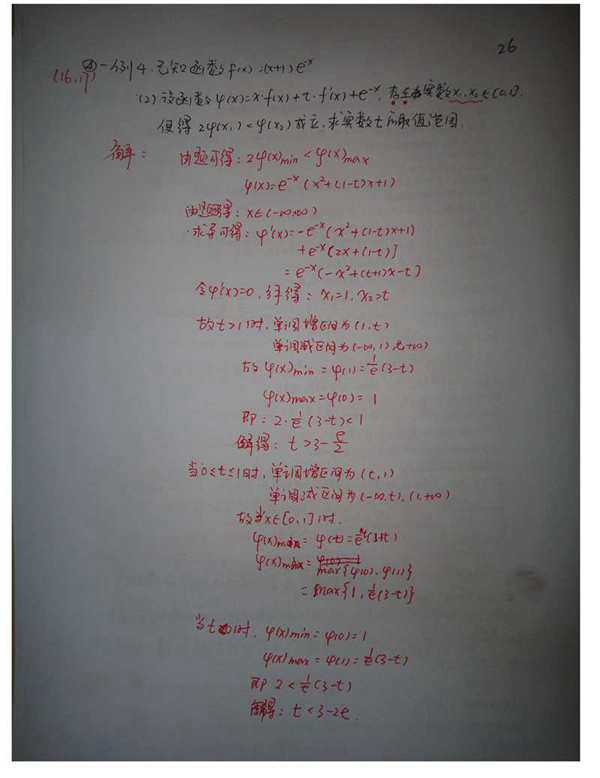 26
(16.17) 例4.已知函数f(x)=(x+1)e^-x
(2)设函数φ(x)=x·f(x)+t·f'(x)+e^-x,存在实数x₁,x₂∈[0,1].
使得2φ(x₁)<φ(x₂)成立,求实数t的取值范围.
解: 由题可得:2φ(x)min<φ(x)max
φ(x)=e^-x(x²+(1-t)x+1)
由题得:x∈(-∞,+∞)
求导可得:φ'(x)=-e^-x(x²+(1-t)x+1)
+e^-x[2x+(1-t)]
=e^-x(-x²+(t+1)x-t]
令φ'(x)=0,解得:x₁=1,x₂=t
故t>1时,单调增区间为(1,t)
单调减区间为(-∞,1),(t,+∞)
故φ(x)min=φ(1)=1/e(3-t)
φ(x)max=φ(0)=1
即:2·1/e(3-t)<1
解得:t>3-e/2
当0<t≤1时,单调增区间为(t,1)
单调减区间为(-∞,t),(1,+∞)
故当x∈[0,1]时.
φ(x)=φ(t)=
φ(x)max=max{φ(0),φ(1)}
=max{1,1/e(3-t)}
当t 时,φ(x)min=φ(0)=1
φ(x)max=φ(1)=1/e(3-t)
即2<1/e(3-t)
解得:t<3-2e.